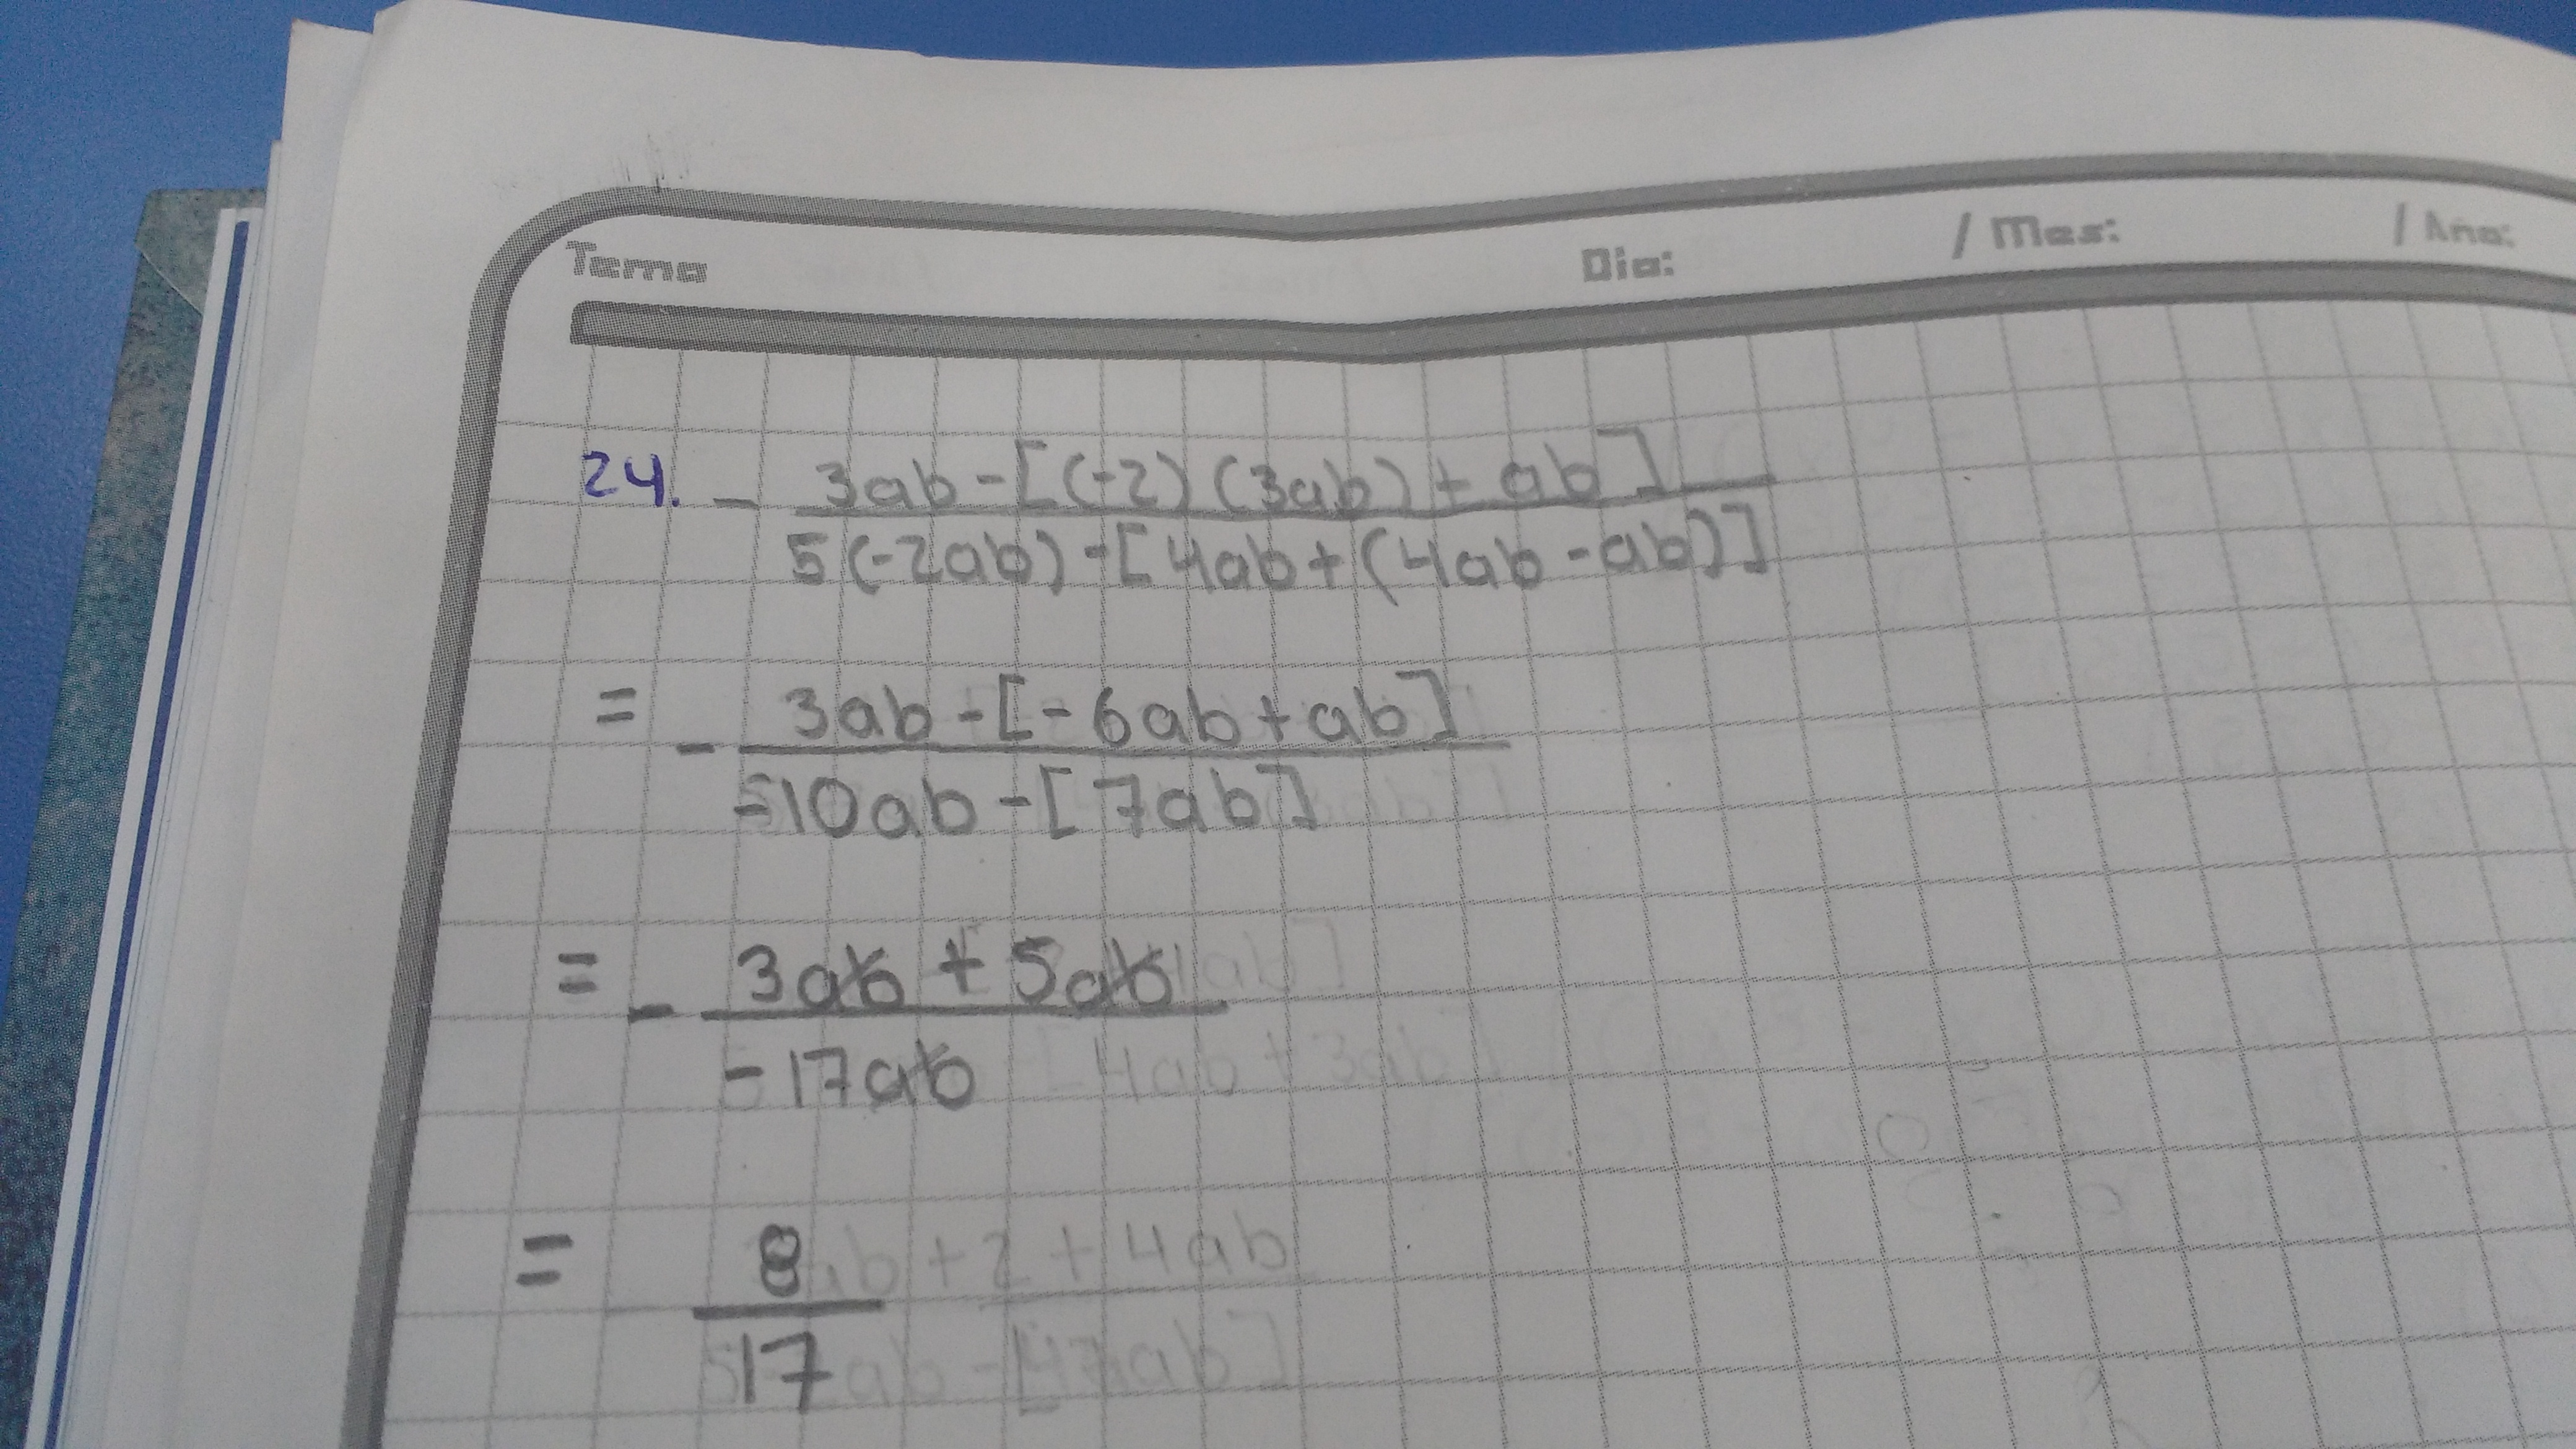 Tema Dia: / Mes: / Año:
24. - 3ab-[(-2)(3ab)+ab]
5(-2ab)-[4ab+(4ab-ab)]
= - 3ab-[-6ab+ab]
-10ab-[7ab]
= - 3ab+5ab
-17ab
= 8
17